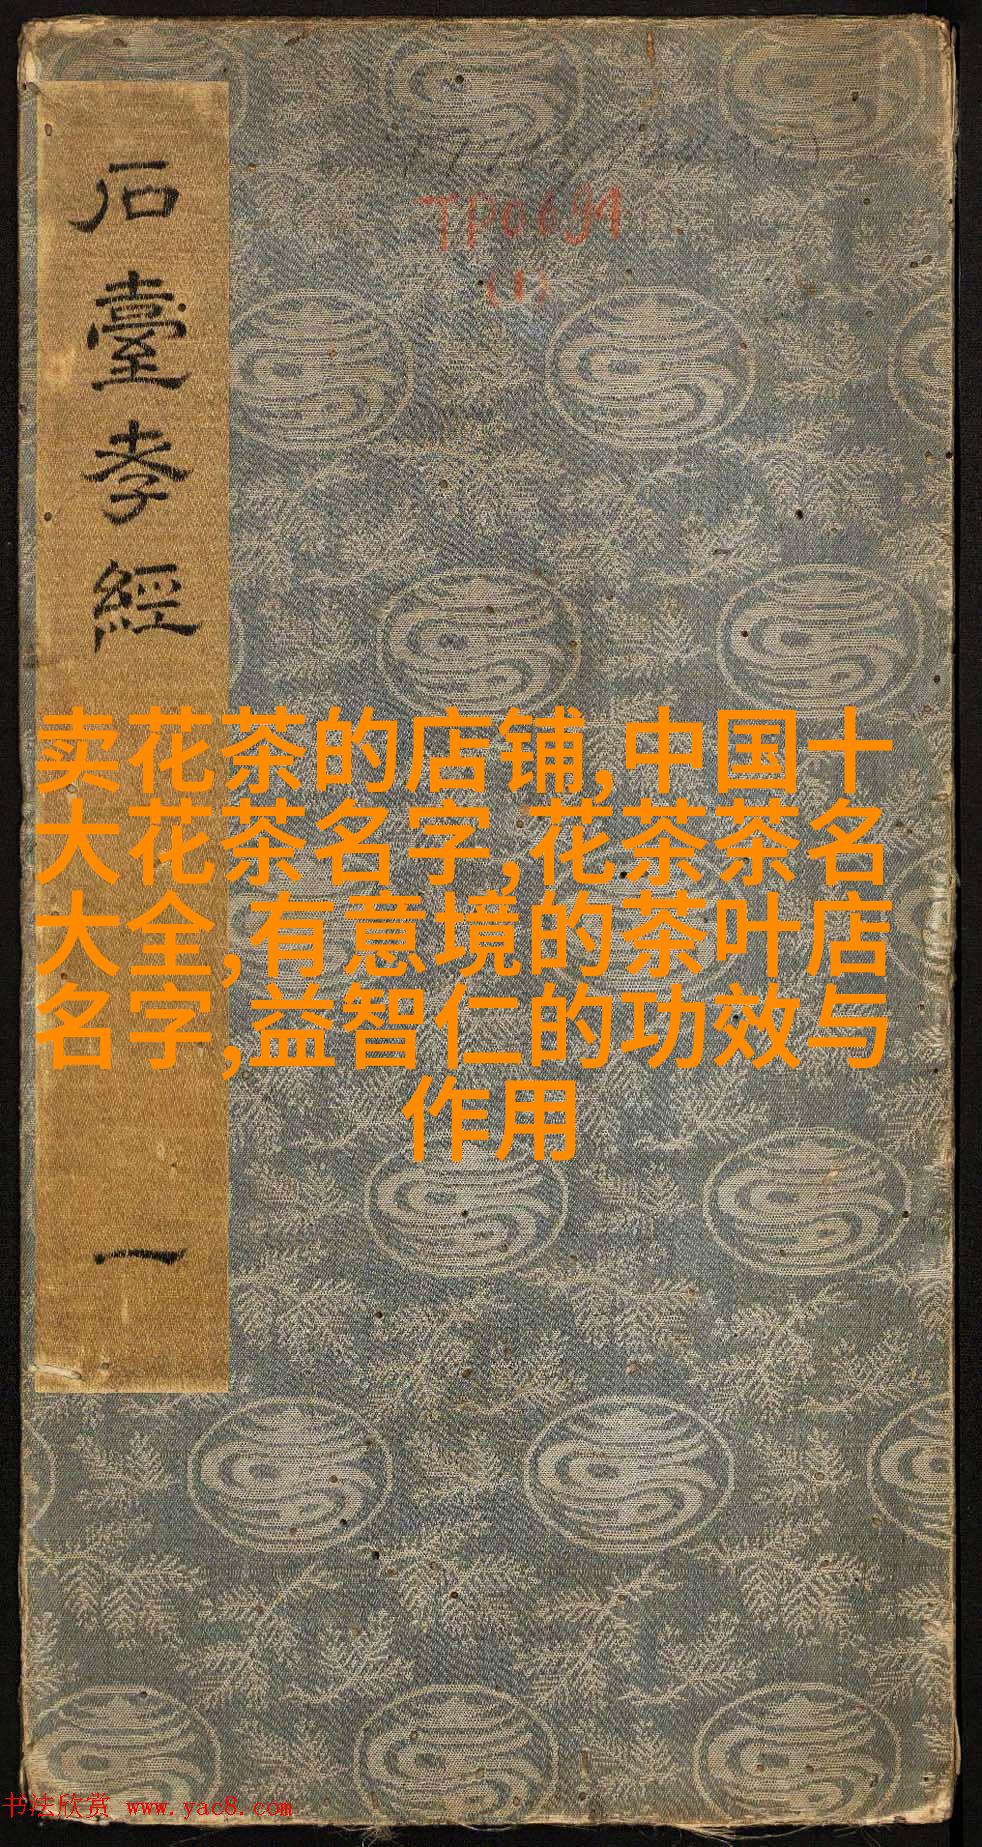 石臺孝經 一
TP0691
(1)
卖花茶的店铺,中国十
大花茶名字,花茶茶名
大全,有意境的茶叶店
名字,益智仁的功效与
作用
书法欣赏 www.yac8.com